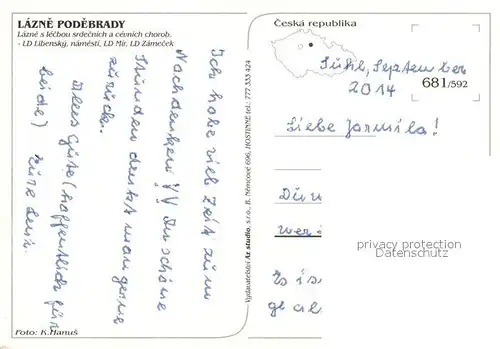 LÁZNĚ PODĚBRADY
Lázně s léčbou srdečních a cévních chorob.
- LD Libenský, náměstí, LD Mír, LD Zámeček
Ich habe viel Zeit zum
Nachdenken!
An schöne
Stunden denkt man gerne
zurück.
Alles Gute (hoffentlich für
beide)
Foto: K.Hanuš
Vydavatelství Az studio, s.r.o., B. Němcové 696, HOSTINNÉ tel.: 777 333 424
Česká republika
681/592
Suhl, September
2014
Liebe Jarmila!
Du
wer
Es is
privacy protection
Datenschutz